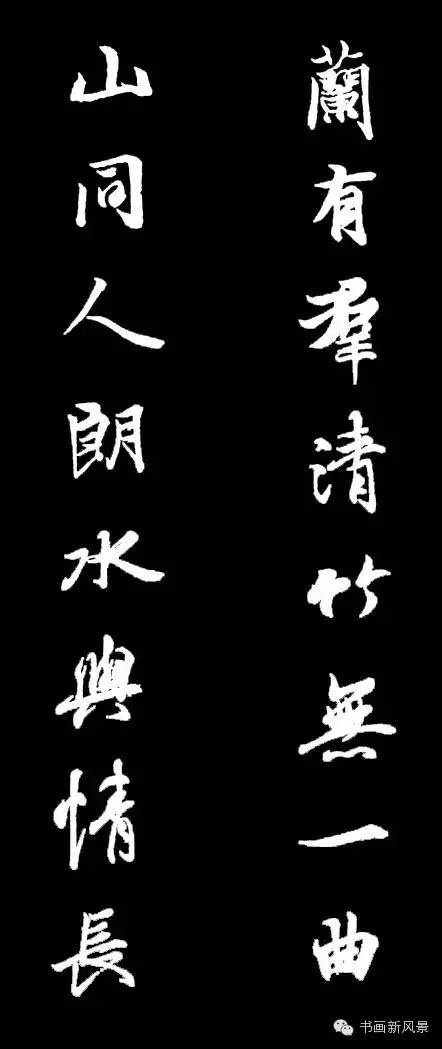 蘭有羣清竹無一曲
山同人朗水與情長
书画新风景